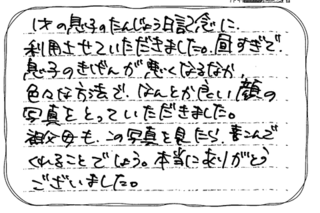 1才の息子のたんじょう日記念に、
利用させていただきました。昼すぎで
息子のきげんが悪くなるなか、
色々な方法で、なんとか良い顔の
写真をとっていただきました。
祖父母も、この写真を見たら、喜こんで
くれることでしょう。本当にありがとう
ございました。